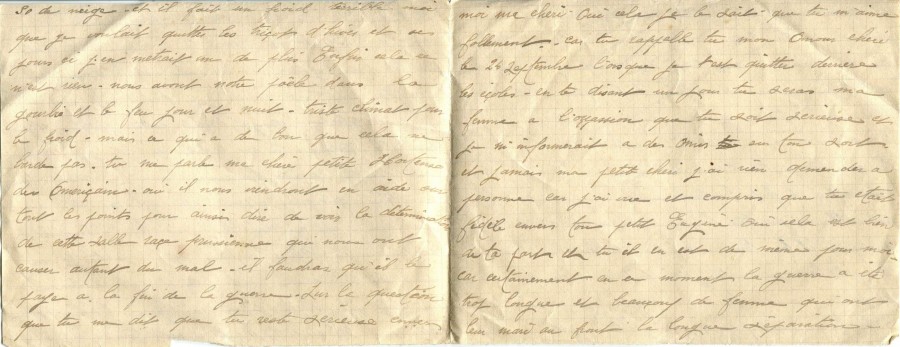 50 de neige et il fait un froid terrible moi
que je voulait quitter les tricots d'hiver et ses
jours ci j'en metrait un de plus Enfin cela ce
n'est rien - nous avont notre poêle dans la
gourbie et le feu jour et nuit - triste climat pour
le froid - mais ce qui a de bon que cela ne
dure pas. tu me parle ma chere petite Hortense
des Americain - oui il nous viendront en aide sur
tout les points pour ainsi dire de voir la
de cette salle race prussienne qui nous ont
causer autant du mal - il faudras qu'il le
paye a la fin de la guerre - Sur la question
que tu me dit que tu reste serieuse envers
moi ma cheri. Oui cela je le sait que tu m'aime
follement. cas tu rappelle tu mon amour cheri
le 24 Septembre l'orsque je t'est quitter derriere
les ecoles - en te disant un jour tu seras ma
femme a l'occasion que tu soit serieuse et
je m'informerait a des amis sur ton sort
et jamais ma petit cheri j'ai rien demender a
personne car j'ai vue et compris que tu etait
fidele envers ton petit Eugène Oui cela est bien
de ta part et tu il en est de même pour moi
car certainement en ce moment la guerre a été
trop longue et beaucoup de femme qui ont
leur mari au front la longue separation -